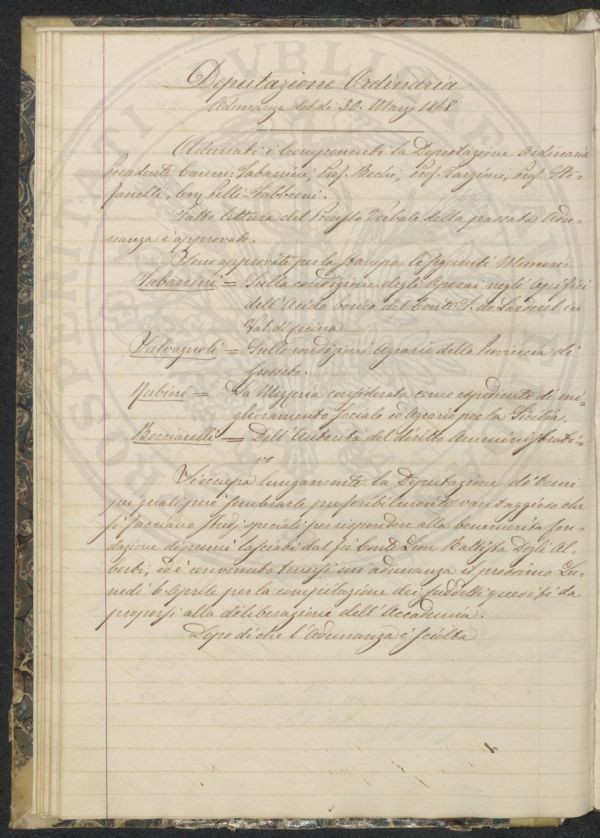 PUBLICAE
PROSPERITATI
Deputazione Ordinaria
Adunanza del dì 30. Marzo 1868
Adunati i componenti la Deputazione Ordinaria
Presidente Comm: Tabarrini, Prof. Bechi, Prof. Targioni, Prof. Ste-
fanelli, Cav. Pelli-Fabbroni.
Fatta lettura del Processo Verbale della passata Adu-
nanza è approvato.
Sono approvate per la stampa le seguenti Memorie
Tabarrini = Sulla condizione degli Operai negli Opifizi
dell'Acido borico del Conte F. de Larderel in
Val di Cecina
Salvagnoli = Sulle condizioni agrarie della Provincia di
Grosseto.
Rubini = La Mezzeria considerata come espediente di mi-
glioramento sociale ed Agrario per la Sicilia.
= Dell'Autorità del diritto Amministrati-
vo
Si occupa lungamente la Deputazione de' temi
pei quali può sembrarle preferibilmente vantaggioso che
si facciano studj speciali per rispondere alla benemerita fon-
dazione di premi lasciati dal fù Conte Leon Battista Degli Al-
berti, ed è convenuto tenersi un'adunanza il prossimo Lu-
nedì 6 Aprile per la compilazione dei suddetti quesiti da
proporsi alla deliberazione dell'Accademia.
Dopo di che l'Adunanza è sciolta